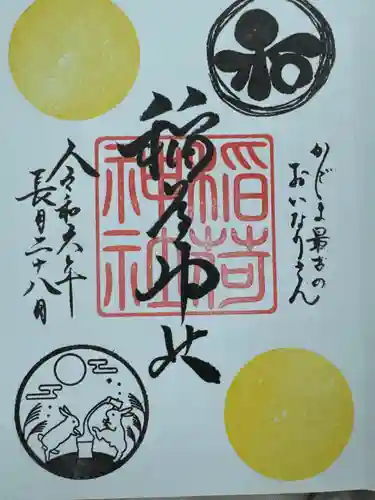 かじま最古の
おいなりさん
稲荷神社
稲荷
神社
令和六年
長月二十八日